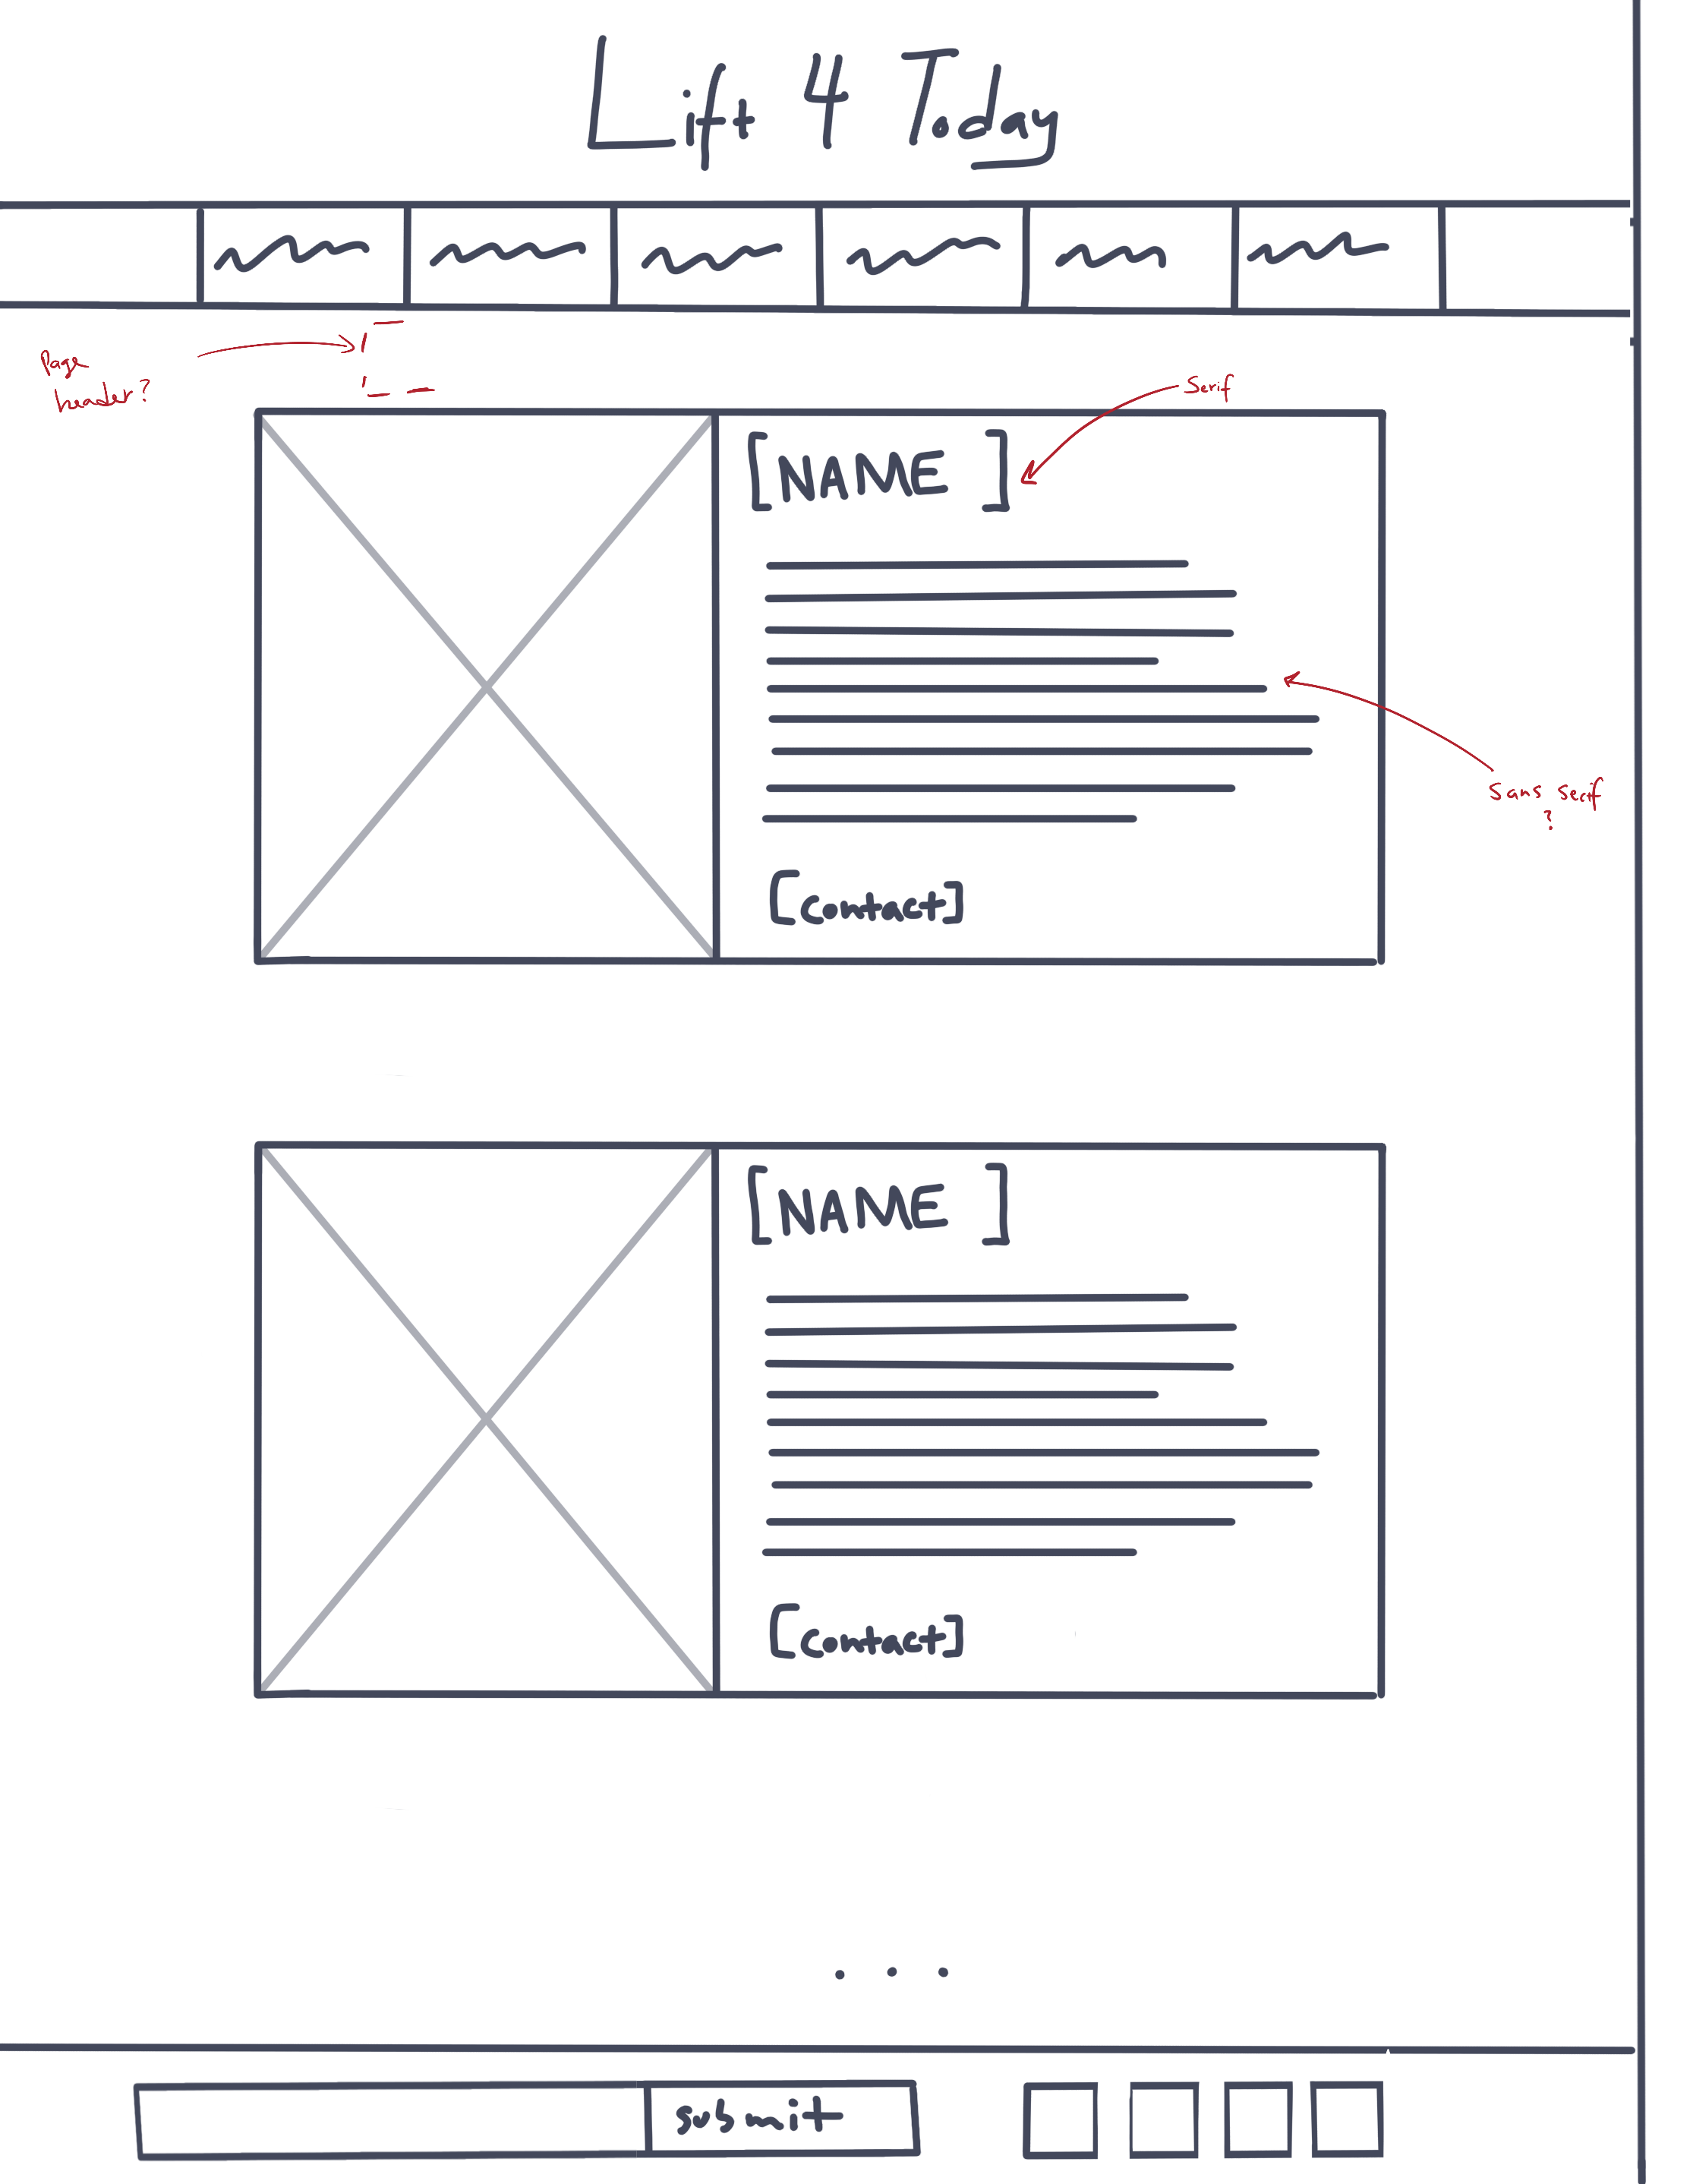 Lift 4 Today
Page
header?
Serif
[NAME ]
Sans Serif
?
[contact]
[NAME ]
[contact]
. . .
submit